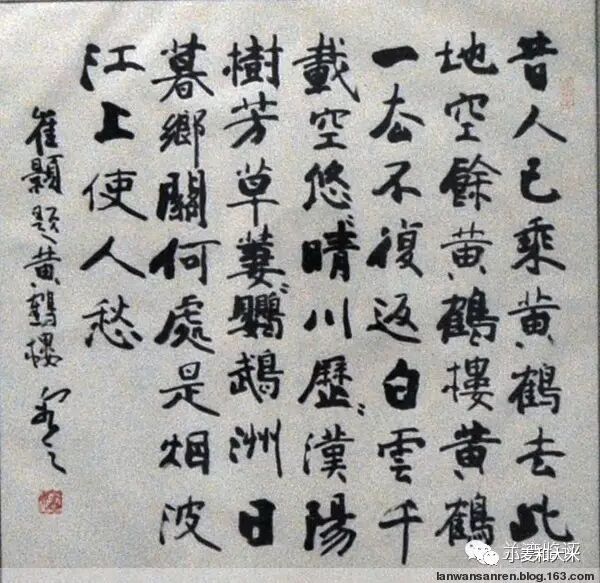 昔人已乘黄鶴去此
地空餘黄鶴樓黄鶴
一去不復返白雲千
載空悠〻晴川歷〻漢陽
樹芳草萋〻鸚鵡洲日
暮鄉關何處是烟波
江上使人愁
崔顥題黄鶴樓
lanwansanren.blog.163.com